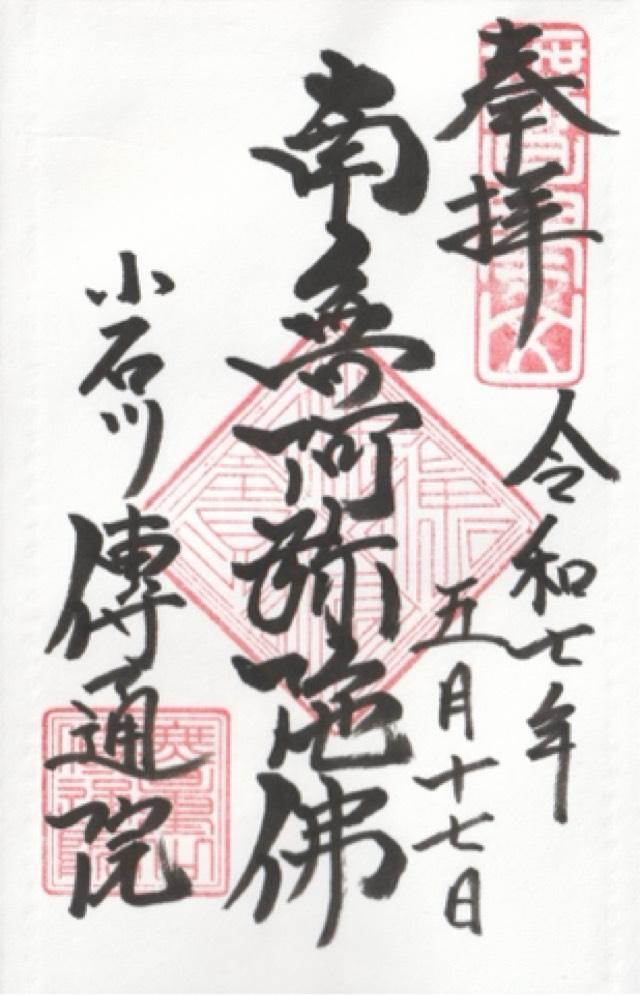 奉拝
令和七年
五月十七日
南無阿弥陀佛
小石川
傳通院